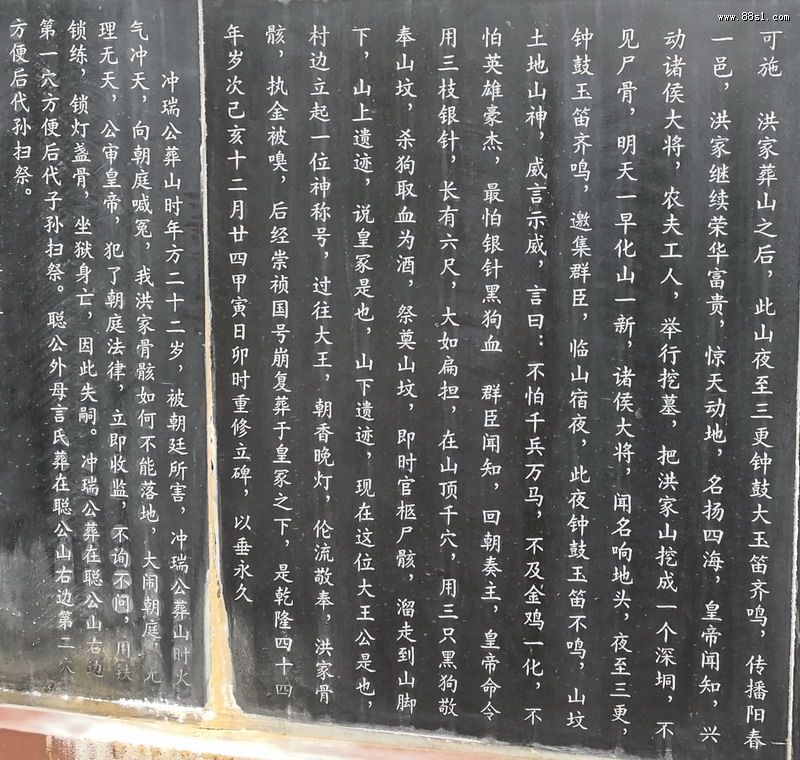 www.88s1.com
可施　洪家葬山之后，此山夜至三更钟鼓大玉笛齐鸣，传播阳春
一邑，洪家继续荣华富贵，惊天动地，名扬四海，皇帝闻知，兴
动诸侯大将，农夫工人，举行挖墓，把洪家山挖成一个深垌，不
见尸骨，明天一早化山一新，诸侯大将，闻名响地头，夜至三更，
钟鼓玉笛齐鸣，邀集群臣，临山宿夜，此夜钟鼓玉笛不鸣，山坟
土地山神，威言示威，言曰：不怕千兵万马，不及金鸡一化，不
怕英雄豪杰，最怕银针黑狗血　群臣闻知，回朝奏王，皇帝命令
用三枝银针，长有六尺，大如扁担，在山顶千穴，用三只黑狗敬
奉山坟，杀狗取血为酒，祭奠山坟，即时官柩尸骸，溜走到山脚
下，山上遗迹，说皇冢是也，山下遗迹，现在这位大王公是也，
村边立起一位神称号，过往大王，朝香晚灯，伦流敬奉，洪家骨
骸，执金被嗅，后经崇祯国号崩复葬于皇冢之下，是乾隆四十四
年岁次己亥十二月廿四甲寅日卯时重修立碑，以垂永久
冲瑞公葬山时年方二十二岁，被朝廷所害，冲瑞公葬山时火
气冲天，向朝庭喊冤，我洪家骨骸如何不能落地，大闹朝庭，无
理无天，公审皇帝，犯了朝庭法律，立即收监，不询不问，用铁
锁练，锁灯盏骨，坐狱身亡，因此失嗣。冲瑞公葬在聪公山右边
第一穴方便后代子孙扫祭。聪公外母言氏葬在聪公山右边第二穴
方便后代孙扫祭。